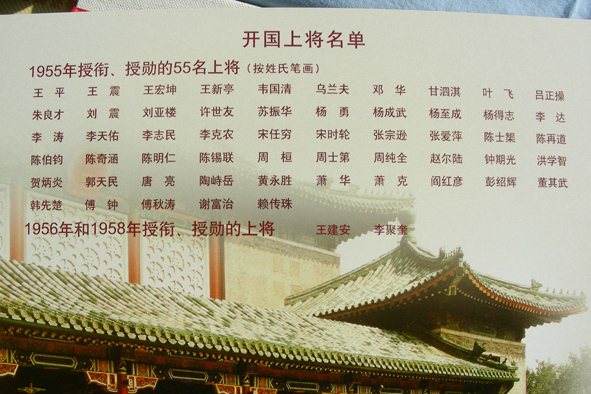 开国上将名单
1955年授衔、授勋的55名上将（按姓氏笔画）
王 平 王 震 王宏坤 王新亭 韦国清 乌兰夫 邓 华 甘泗淇 叶 飞 吕正操
朱良才 刘 震 刘亚楼 许世友 苏振华 杨 勇 杨成武 杨至成 杨得志 李 达
李 涛 李天佑 李志民 李克农 宋任穷 宋时轮 张宗逊 张爱萍 陈士榘 陈再道
陈伯钧 陈奇涵 陈明仁 陈锡联 周 桓 周士第 周纯全 赵尔陆 钟期光 洪学智
贺炳炎 郭天民 唐 亮 陶峙岳 黄永胜 萧 华 萧 克 阎红彦 彭绍辉 董其武
韩先楚 傅 钟 傅秋涛 谢富治 赖传珠
1956年和1958年授衔、授勋的上将 王建安 李聚奎